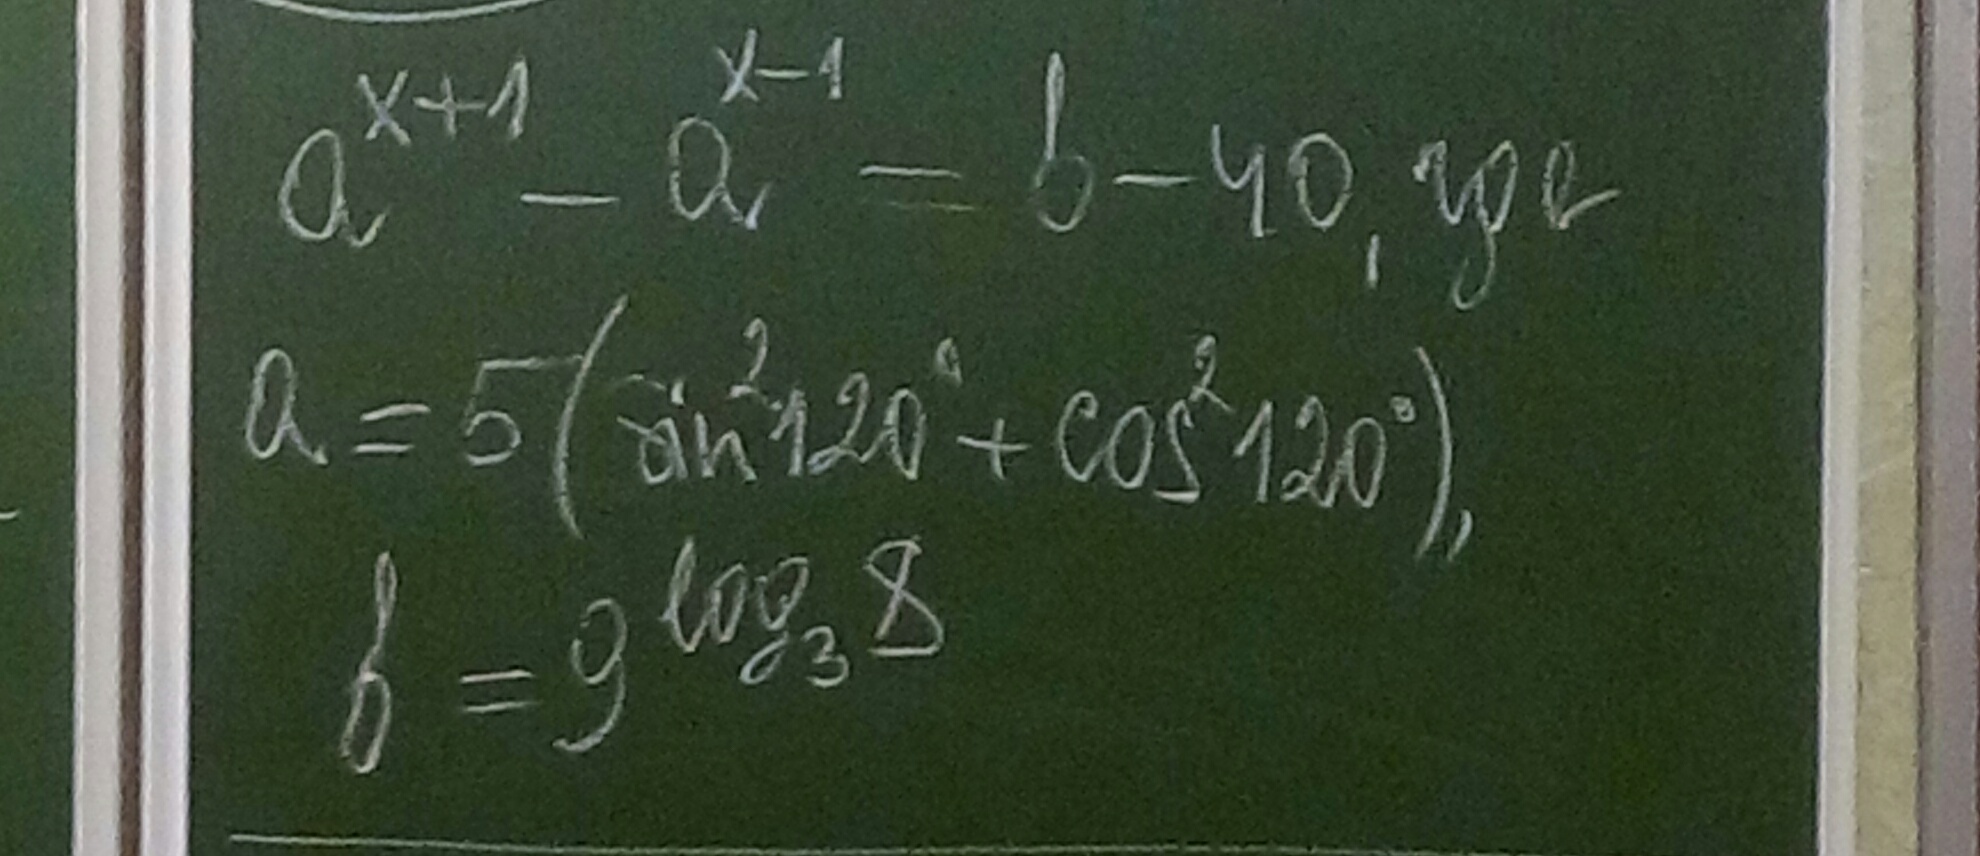 a^{x+1} - a^{x-1} = b - 40, где
a = 5(sin²120° + cos²120°),
b = 9^{log₃8}